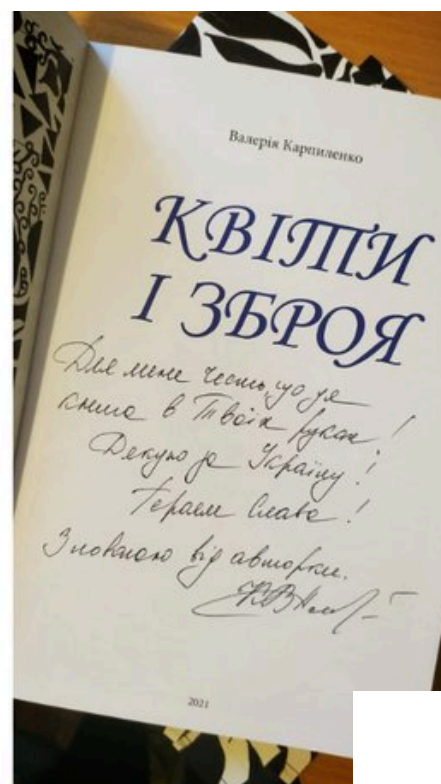 Валерія Карпиленко
КВІТИ
І ЗБРОЯ
Для мене честь, що ця
книга в Твоїх руках!
Дякую за Україну!
Героям Слава!
З повагою від авторки.
2021